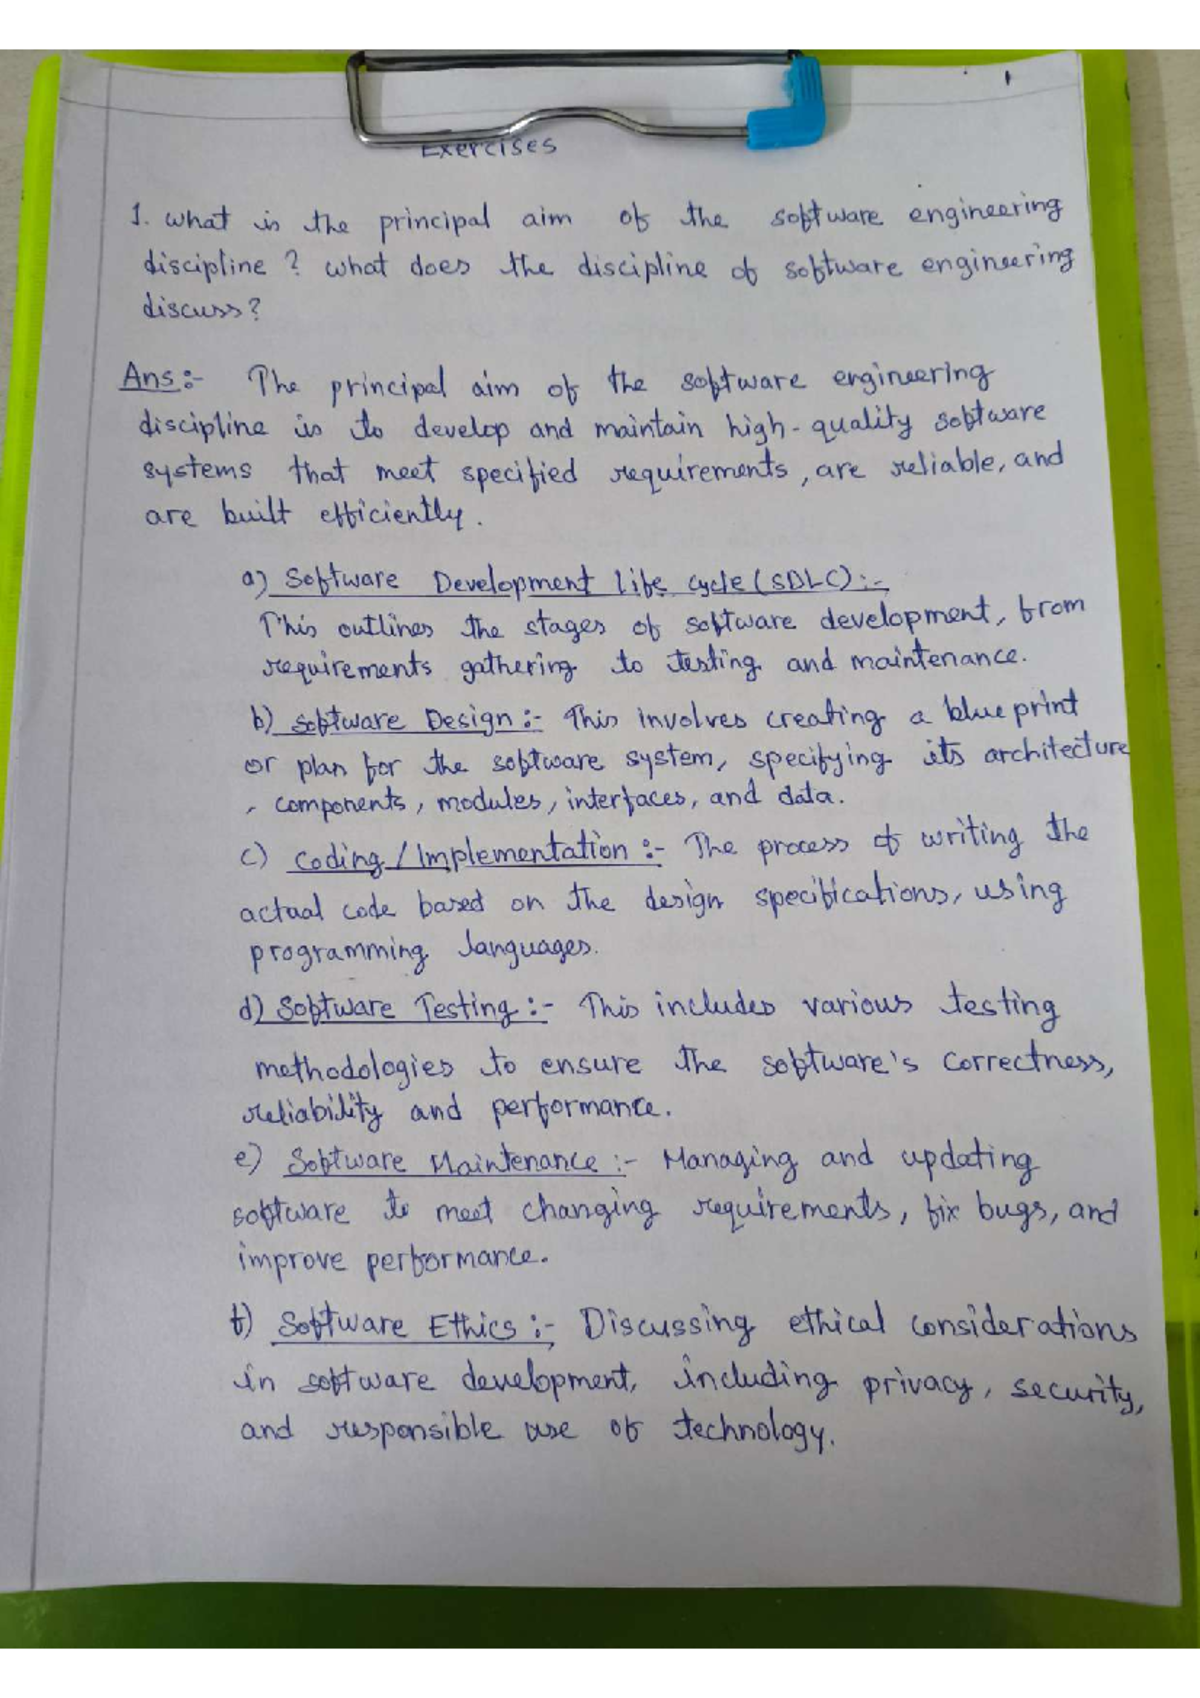 1
Exercises
1. What is the principal aim of the software engineering
discipline ? What does the discipline of software engineering
discuss?
Ans:- The principal aim of the software engineering
discipline is to develop and maintain high-quality software
systems that meet specified requirements, are reliable, and
are built efficiently.
a) Software Development life cycle (SDLC):-
This outlines the stages of software development, from
requirements gathering to testing and maintenance.
b) Software Design:- This involves creating a blue print
or plan for the software system, specifying its architecture
, components, modules, interfaces, and data.
c) Coding / Implementation :- The process of writing the
actual code based on the design specifications, using
programming languages.
d) Software Testing :- This includes various testing
methodologies to ensure the software's correctness,
reliability and performance.
e) Software Maintenance :- Managing and updating
software to meet changing requirements, fix bugs, and
improve performance.
f) Software Ethics :- Discussing ethical considerations
in software development, including privacy, security,
and responsible use of technology.